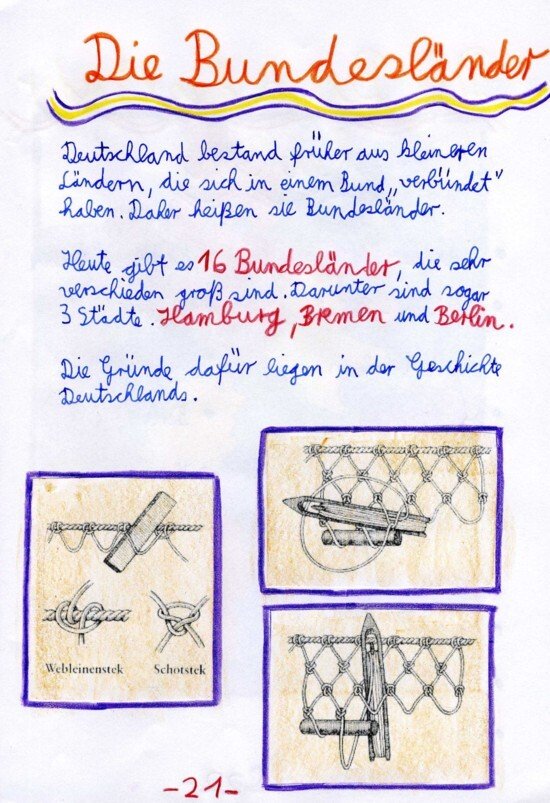 Die Bundesländer
Deutschland bestand früher aus kleineren
Ländern, die sich in einem Bund „verbündet"
haben. Daher heißen sie Bundesländer.
Heute gibt es 16 Bundesländer, die sehr
verschieden groß sind. Darunter sind sogar
3 Städte. Hamburg, Bremen und Berlin.
Die Gründe dafür liegen in der Geschichte
Deutschlands.
Webleinenstek Schotstek
-21-